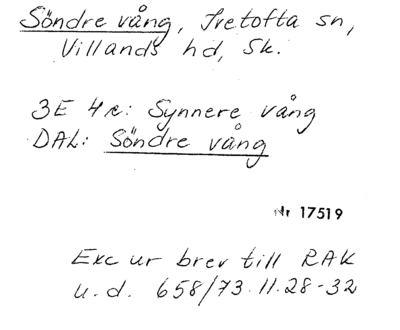 Söndre vång, Ivetofta sn,
Villands hd, Sk.
3E 4c: Synnere vång
DAL: Söndre vång
Nr 17519
Exc ur brev till RAK
u.d. 658/73.11.28-32